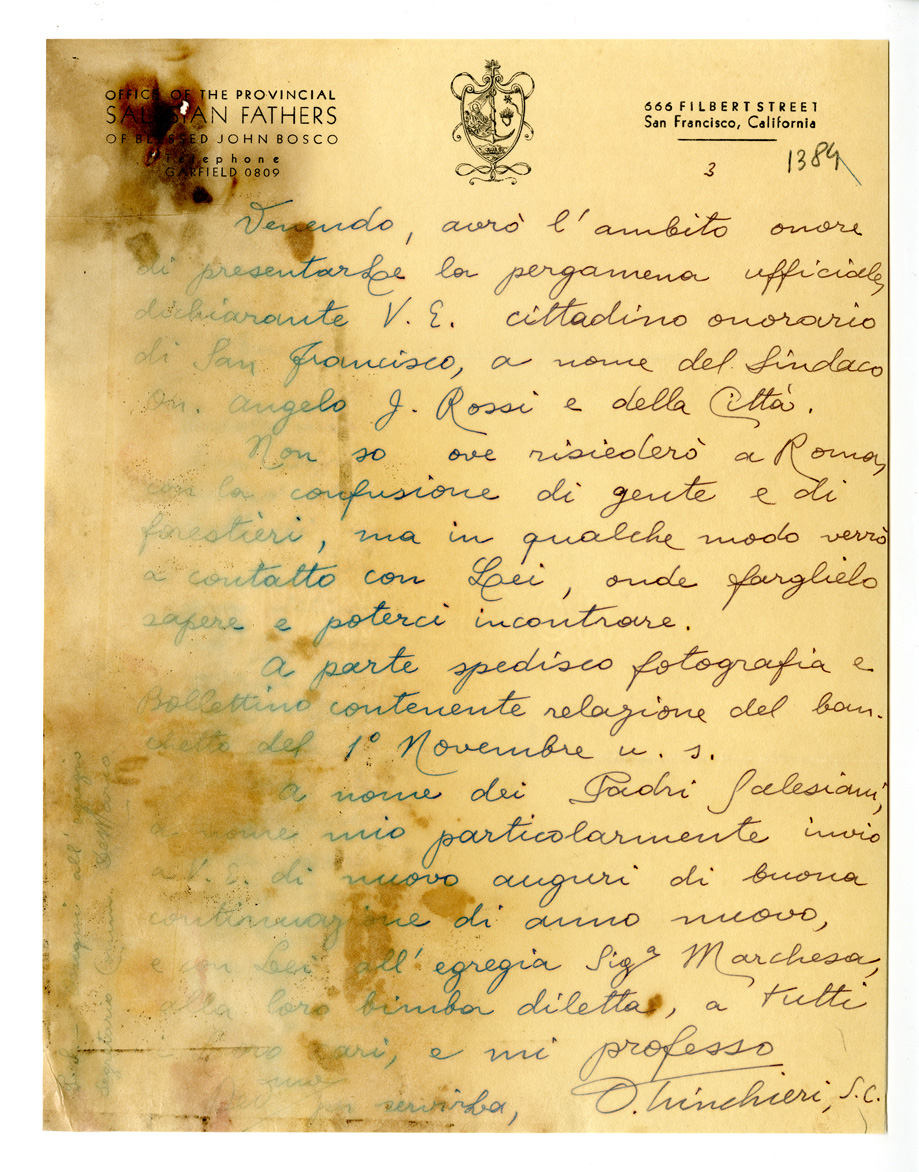 OFFICE OF THE PROVINCIAL
SALESIAN FATHERS
OF BLESSED JOHN BOSCO
Telephone
GARFIELD 0809
666 FILBERT STREET
San Francisco, California
3
1384
Venendo, avrò l'ambito onore
di presentarLe la pergamena ufficiale,
dichiarante V. E. cittadino onorario
di San Francisco, a nome del Sindaco
On. Angelo J. Rossi e della Città.
Non so ove risiederò a Roma,
con la confusione di gente e di
forestieri, ma in qualche modo verrò
a contatto con Lei, onde farglielo
sapere e poterci incontrare.
A parte spedisco fotografia e
Bollettino contenente relazione del ban-
chetto del 1º Novembre u. s.
A nome dei Padri Salesiani,
a nome mio particolarmente invio
a V. E. di nuovo auguri di buona
continuazione di anno nuovo,
e con Lei all'egregia Sigª Marchesa,
alla loro bimba diletta, a tutti
i loro cari, e mi professo
suo
per servirLa,
O. Trinchieri, S.C.
all'egregio
Segretario Comm.